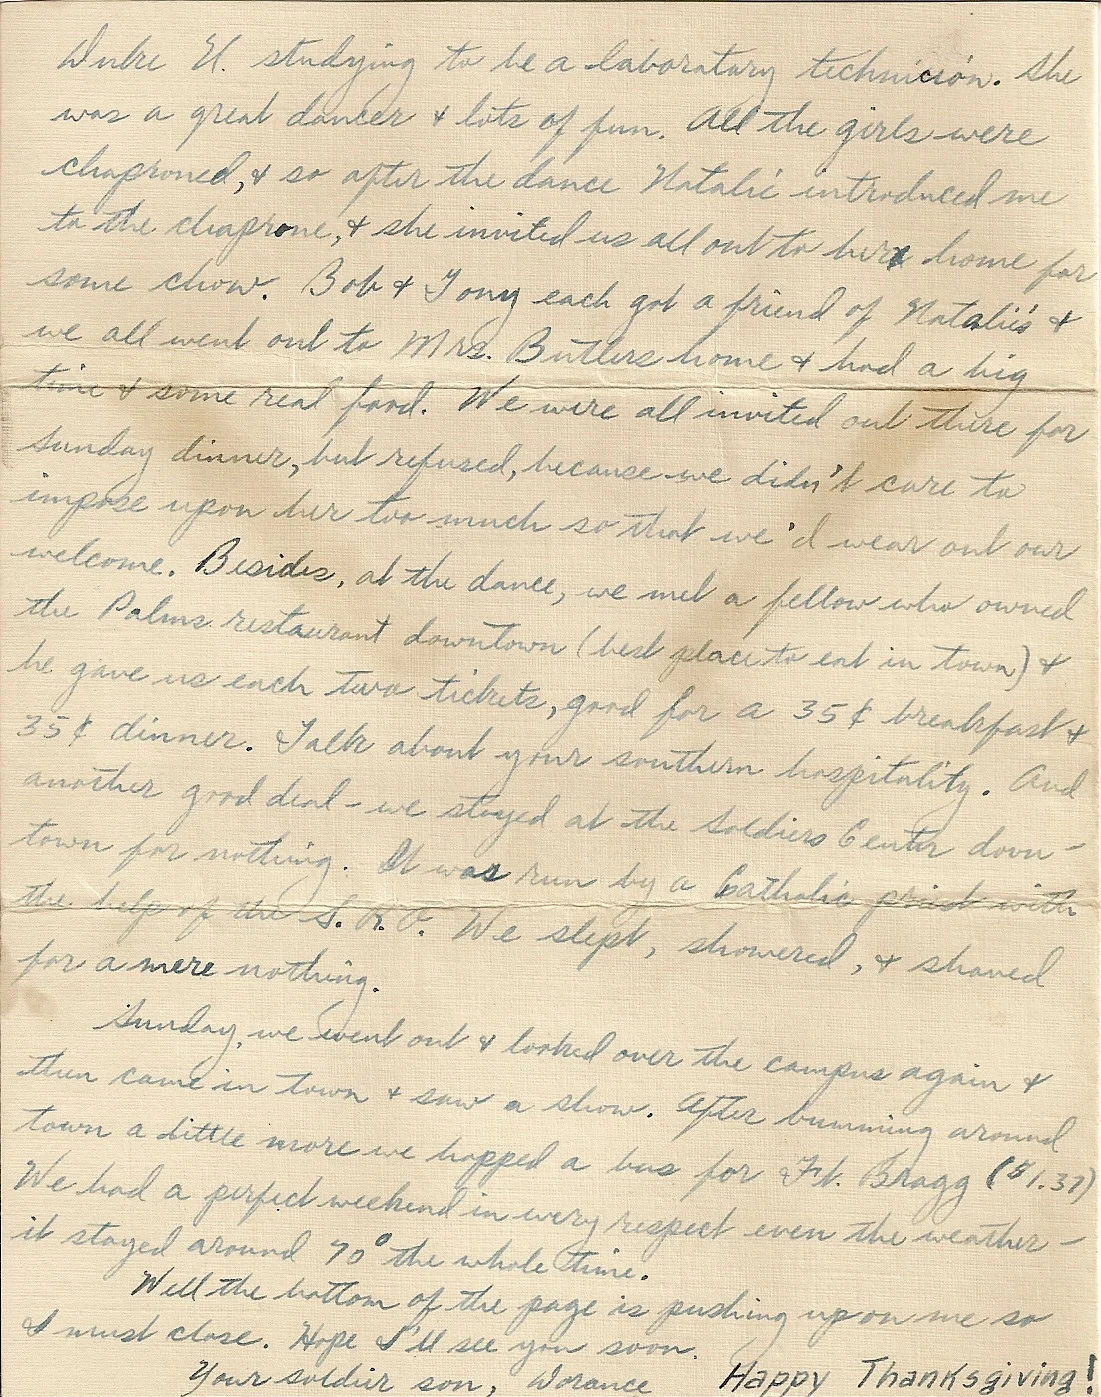 Duke U. studying to be a laboratory technician. She
was a great dancer & lots of fun. All the girls were
chaproned, & so after the dance Natalie introduced me
to the chaprone, & she invited us all out to her home for
some chow. Bob & Tony each got a friend of Natalie's &
we all went out to Mrs. Butlers home & had a big
time & some real food. We were all invited out there for
Sunday dinner, but refused, because we didn't care to
impose upon her too much so that we'd wear out our
welcome. Besides, at the dance, we met a fellow who owned
the Palms restaurant downtown (best place to eat in town) &
he gave us each two tickets, good for a 35¢ breakfast &
35¢ dinner. Talk about your southern hospitality. And
another good deal - we stayed at the Soldiers Center down-
town for nothing. It was run by a Catholic priest with
the help of the S. R. O. We slept, showered, & shaved
for a mere nothing.
Sunday, we went out & looked over the campus again &
then came in town & saw a show. After bumming around
town a little more we hopped a bus for Ft. Bragg ($1.37)
We had a perfect weekend in every respect even the weather -
it stayed around 70° the whole time.
Well the bottom of the page is pushing up on me so
I must close. Hope I'll see you soon.
Your soldier son, Dorance Happy Thanksgiving!